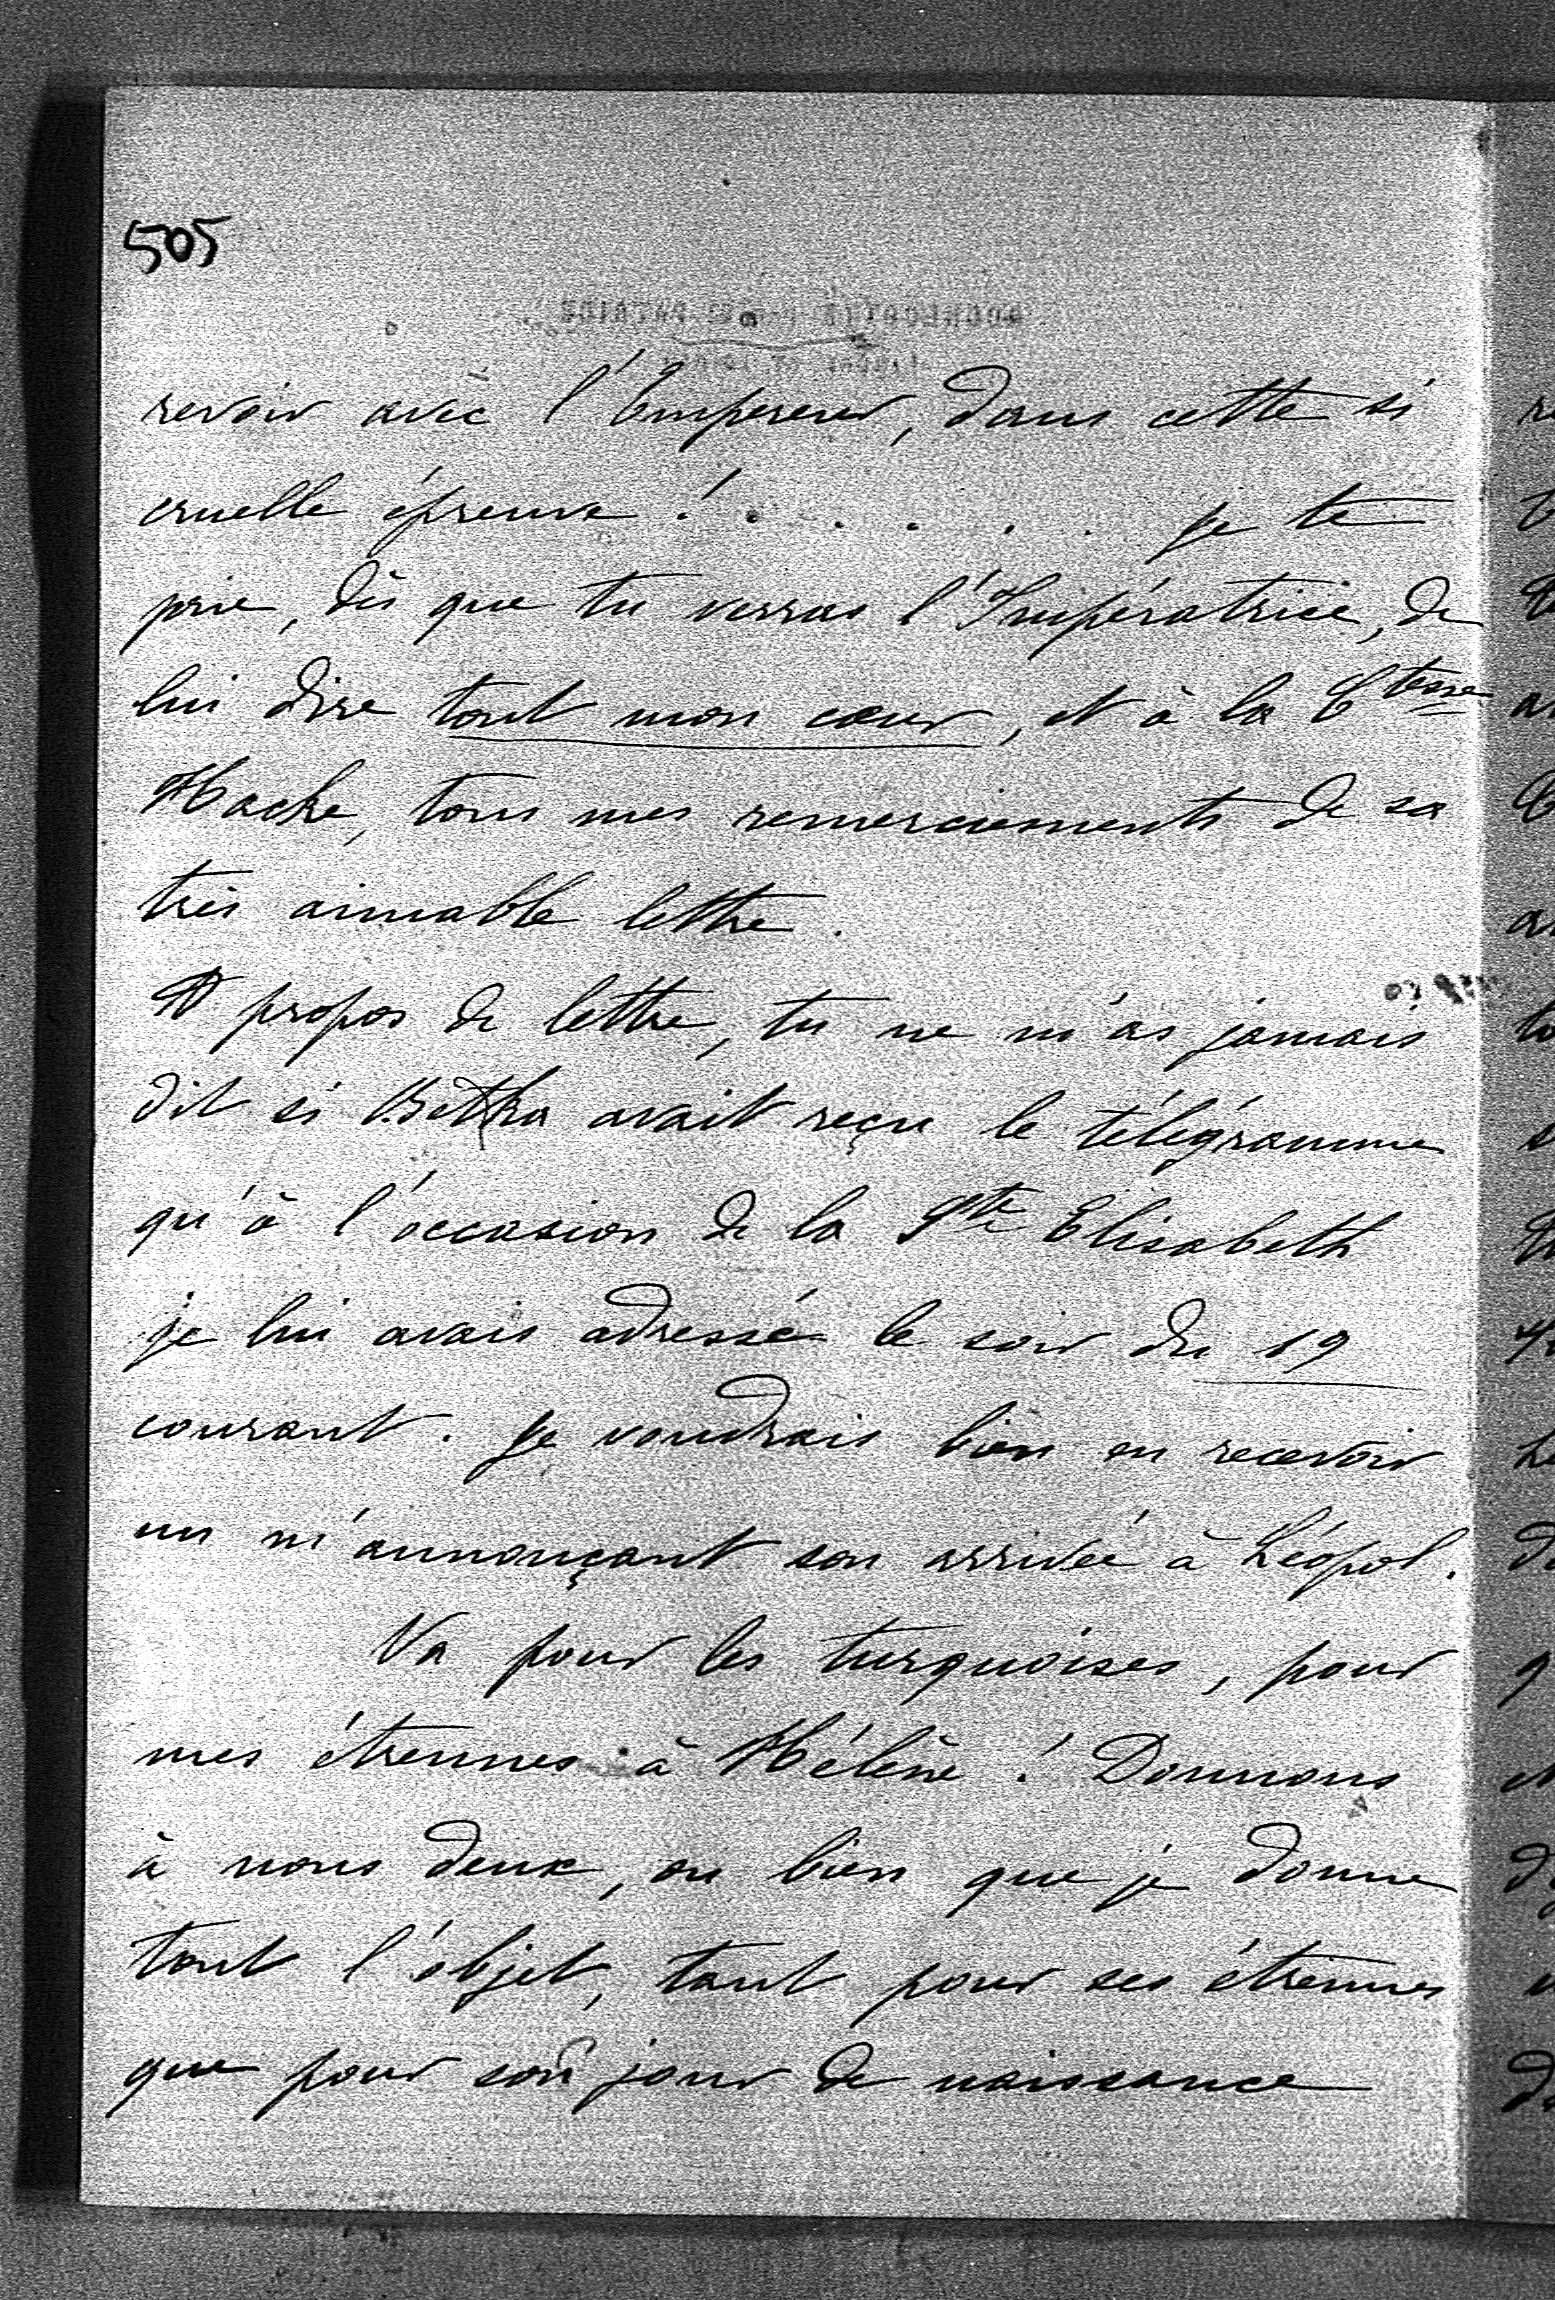 505
revoir avec l'Empereur, dans cette si
cruelle épreuve ! . . . . . je te
prie, dès que tu verras l'Impératrice, de
lui dire tout mon cœur, et à la Ctesse
Hacke, tous mes remerciements de sa
très aimable lettre.
A propos de lettre, tu ne m'as jamais
dit si Betka avait reçu le télégramme
qu'à l'occasion de la Ste Elisabeth
je lui avais adressé le soir du 19
courant. Je voudrais bien en recevoir
un m'annonçant son arrivée à Léopol.
Va pour les turquoises, pour
mes étrennes à Hélène ! Donnons
à nous deux, ou bien que je donne
tout l'objet, tant pour ses étrennes
que pour son jour de naissance